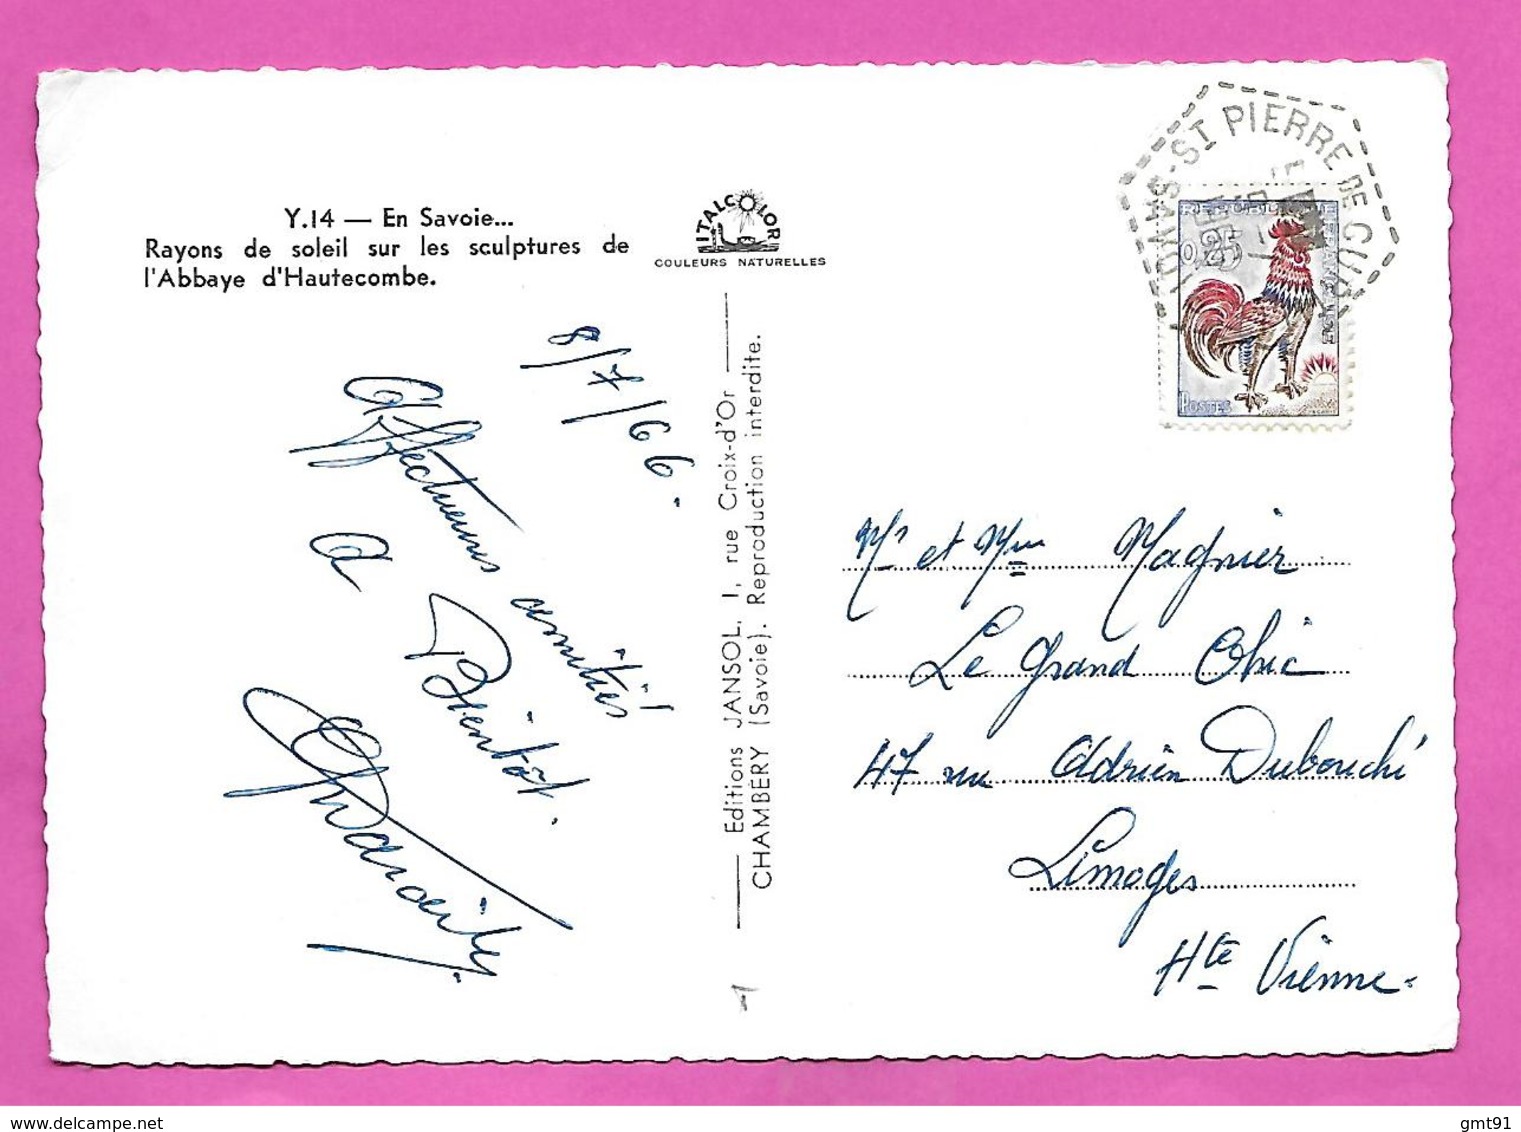 Y.14 — En Savoie...
Rayons de soleil sur les sculptures de
l'Abbaye d'Hautecombe.
ITALCOLOR
COULEURS NATURELLES
ST PIERRE DE CUR
SAVOIE
REPUBLIQUE
FRANÇAISE
0,25
POSTES
8/7/66.
Affectueuses amitiés!
a Bientôt.
Editions JANSOL, 1, rue Croix-d'Or
CHAMBÉRY (Savoie). Reproduction interdite.
Mr et Mme Magnier
Le Grand Chic
47 rue Adrien Dubouché
Limoges
Hte Vienne.
www.delcampe.net
gmt91